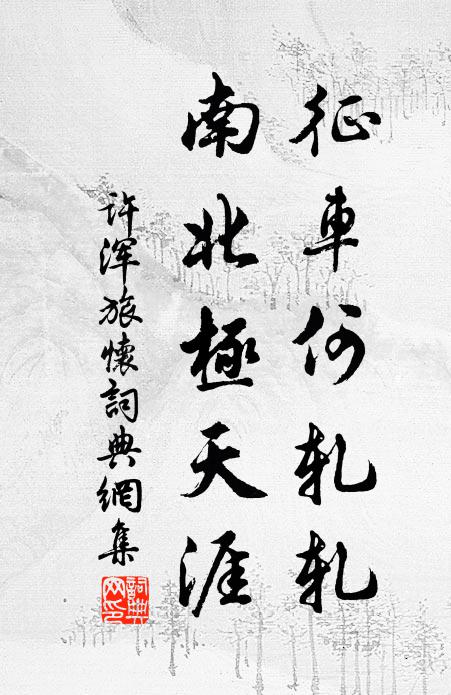 征車何轧轧
南北極天涯
许浑旅懷詞典網集
詞典网印